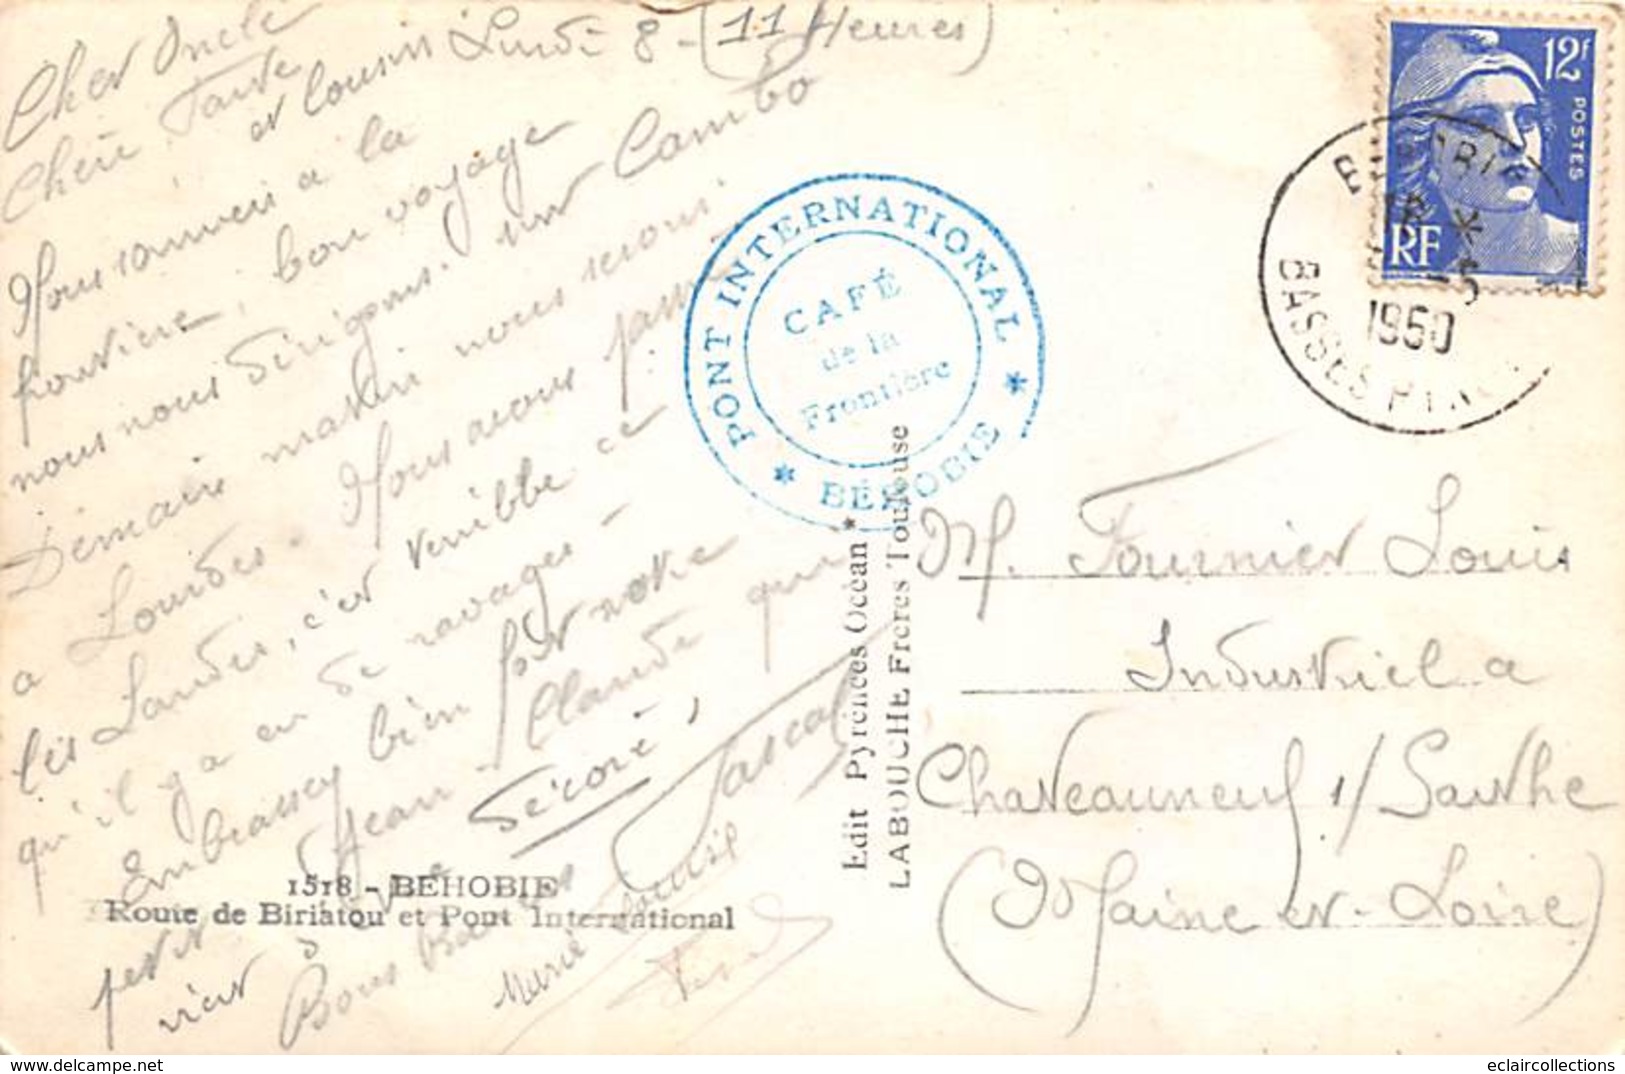 Lundi 8 - (11 Heures)
Cher Oncle
Chère Tante
et Cousins
Nous sommes à la
frontière, bon voyage
nous nous dirigeons sur Cambo
Demain matin nous serons
a Lourdes. Nous avons passé
les Landes, c'est terrible ce
qu'il y a eu de ravages -
Embrassez bien fort notre
petit Jean-Claude qui
vient d'être décoré,
Bons Baisers
Marie Louise
Pascal
1518 - BÉHOBIE
Route de Biriatou et Pont International
PONT INTERNATIONAL
CAFÉ
de la
Frontière
* BÉHOBIE *
Edit Pyrénées Océan
LABOUCHE Frères Toulouse
12f
POSTES
RF
18 *
-5
1950
BASSES PYR
M. Fournier Louis
Industriel a
Chateauneuf s/ Sarthe
(Maine et-Loire)
eclaircollections